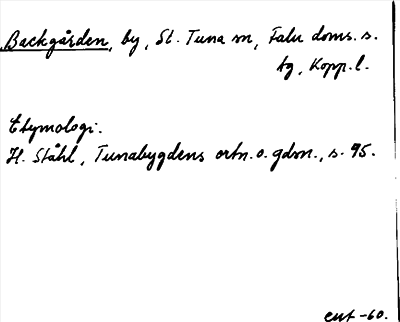 Backgården, by, St. Tuna sn, Falu doms. s.
tg, Kopp. l.
Etymologi.
H. Ståhl, Tunabygdens ortn. o. gdsn., s. 95.
-60.